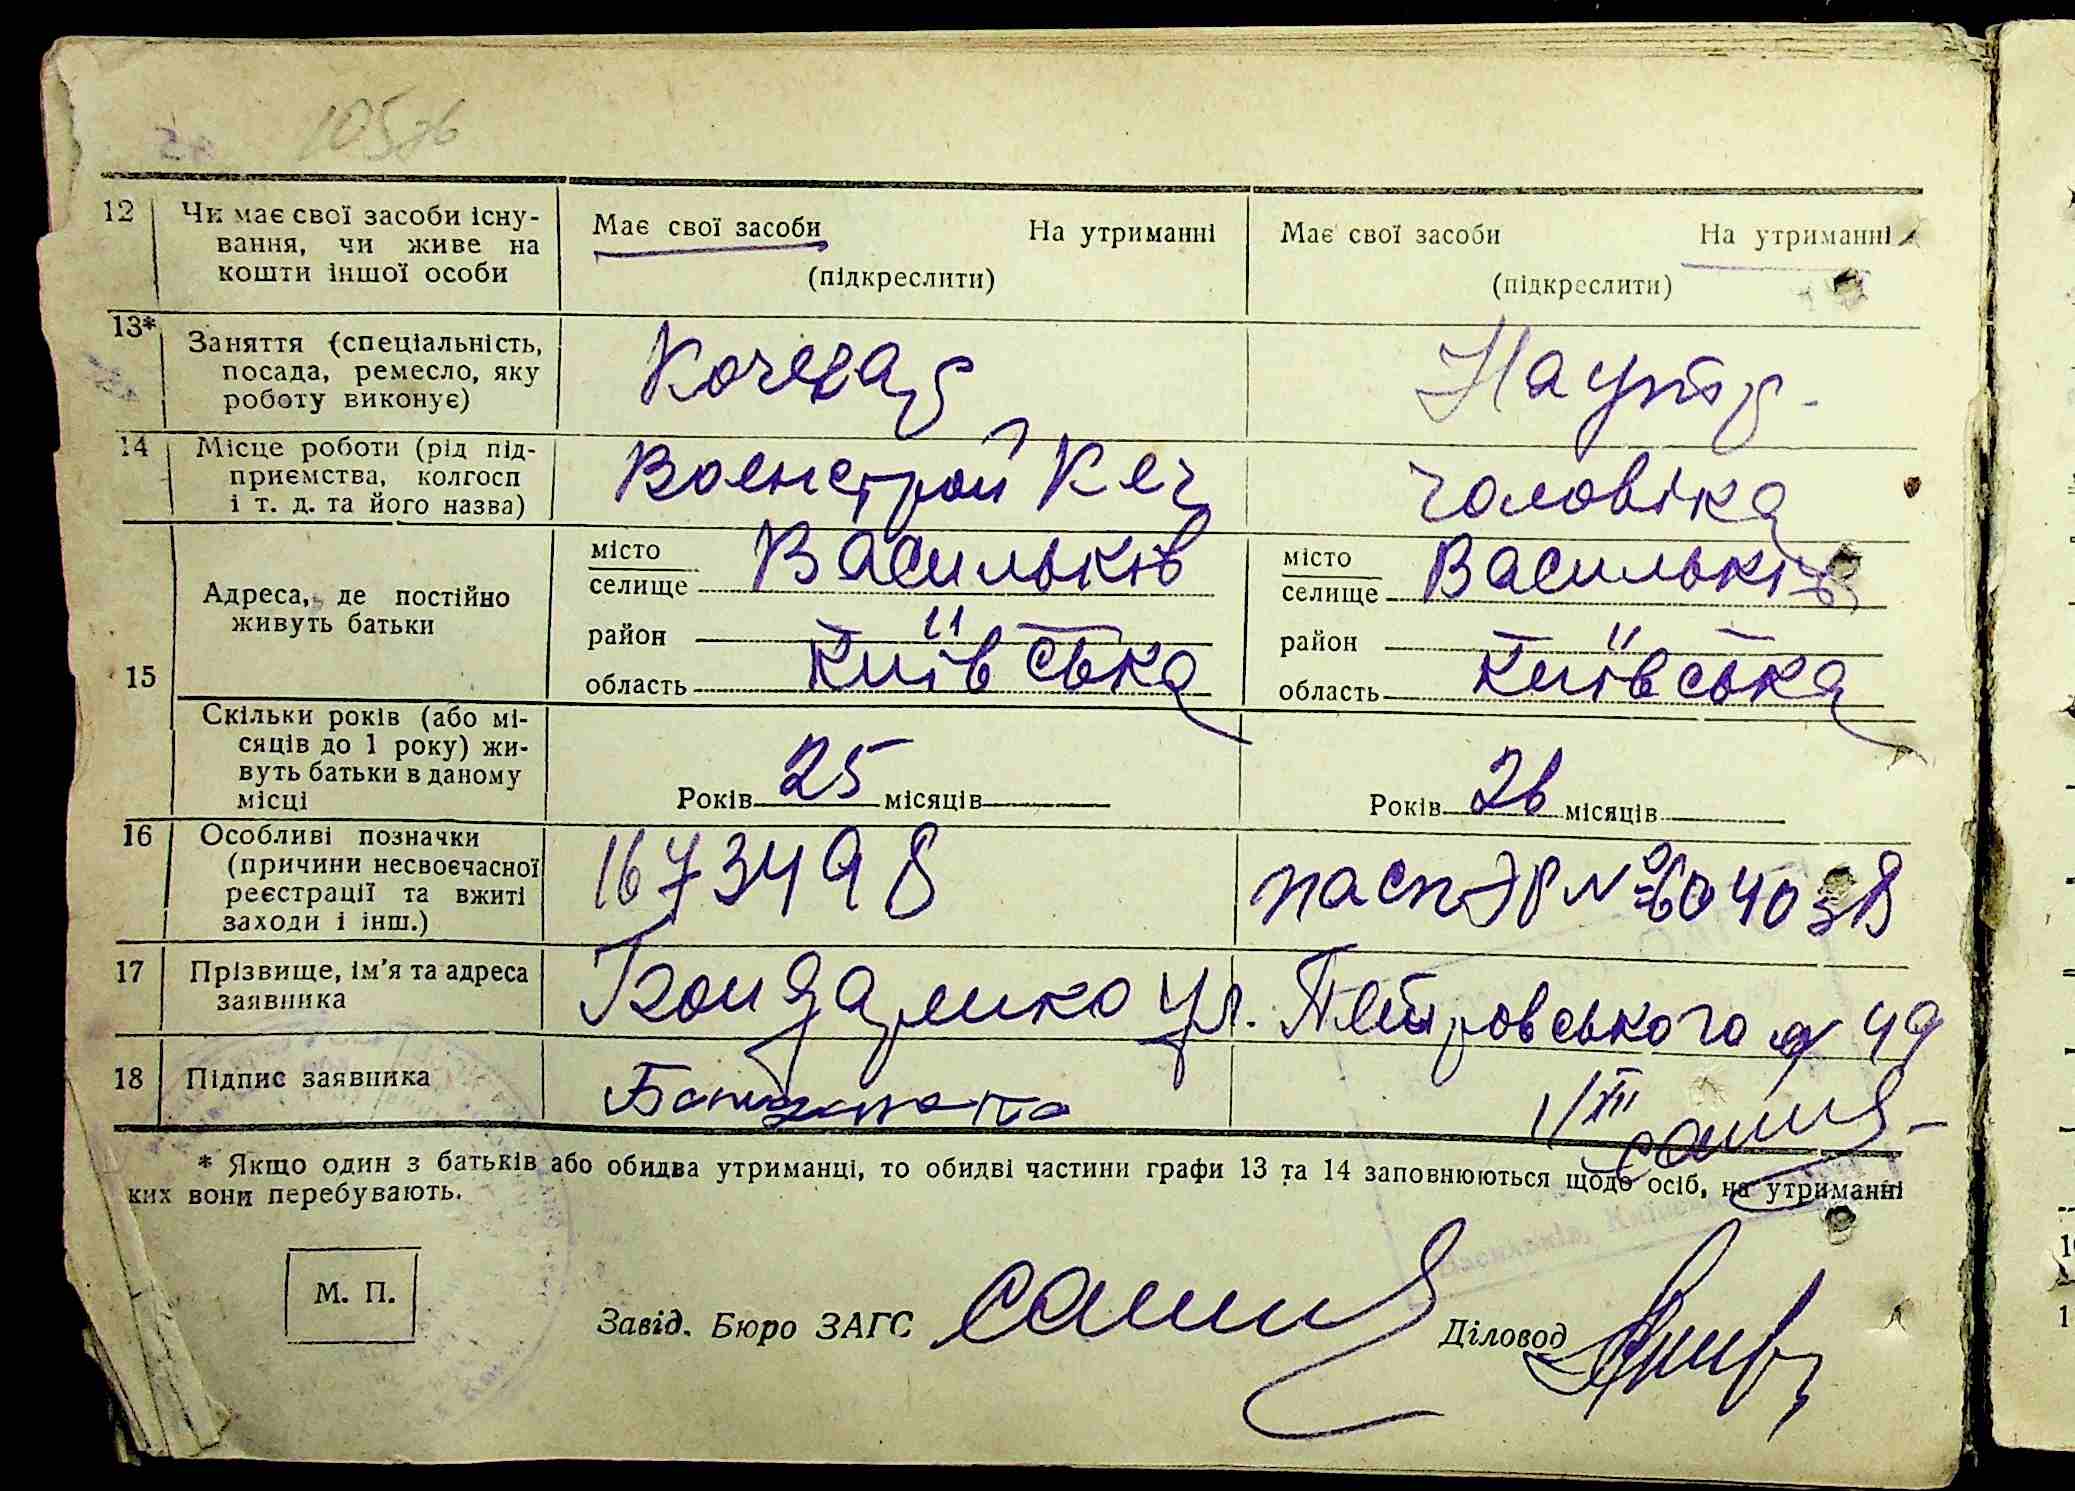 105зв
12 Чи має свої засоби існу- Має свої засоби На утриманні Має свої засоби На утриманні
вання, чи живе на
кошти іншої особи (підкреслити) (підкреслити)
13* Заняття (спеціальність, Кочегар На утр-
посада, ремесло, яку
роботу виконує)
14 Місце роботи (рід під- Военстрой Кеч чоловіка
приємства, колгосп
і т. д. та його назва)
15 Адреса, де постійно місто Васильків місто Васильків
живуть батьки селище селище
район — " — район — " —
область Київська область Київська
Скільки років (або мі-
сяців до 1 року) жи-
вуть батьки в даному
місці Років 25 місяців Років 26 місяців
16 Особливі позначки 1673498 пасп ЭР № 604038
(причини несвоєчасної
реєстрації та вжиті
заходи і інш.)
17 Прізвище, ім'я та адреса Бондаренко ул. Петровського д 49
заявника
18 Підпис заявника 1/XII
* Якщо один з батьків або обидва утриманці, то обидві частини графи 13 та 14 заповнюються щодо осіб, на утриманні
ких вони перебувають.
М. П.
Завід. Бюро ЗАГС Діловод